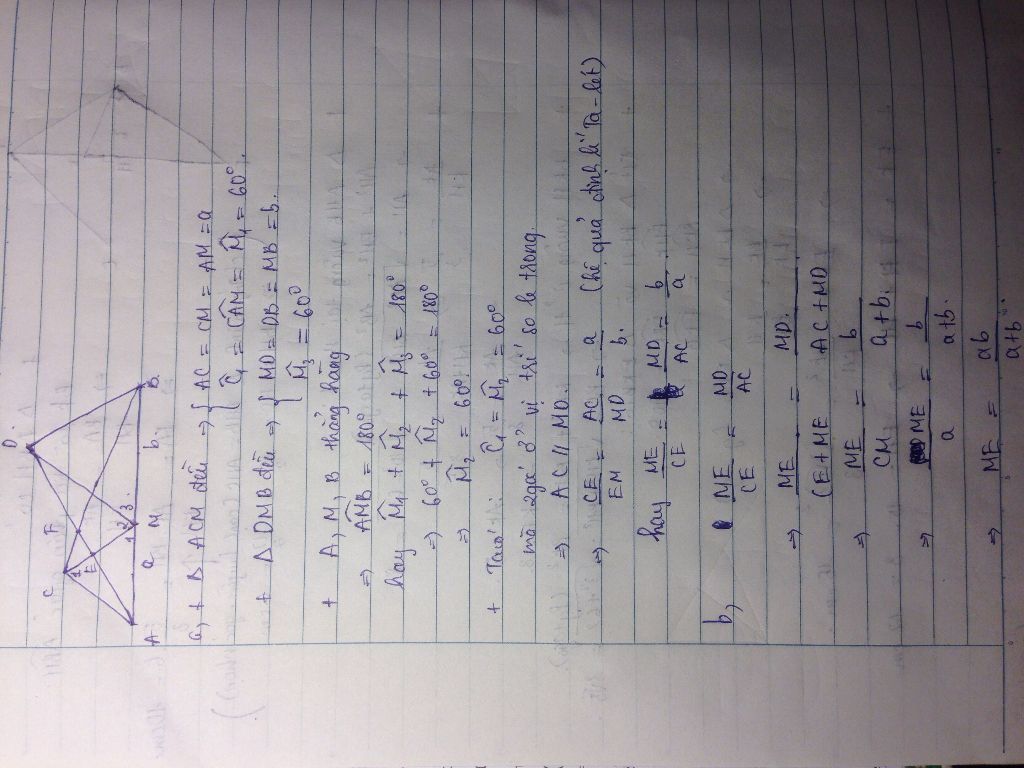 D.
C
F
1
E
1 2 3
A a M b B.
a, + Δ ACM đều ⇒ { AC = CM = AM = a
Ĉ₁ = CÂM = M̂₁ = 60°.
+ Δ DMB đều ⇒ { MD = DB = MB = b.
M̂₃ = 60°
+ A, M, B thẳng hàng
⇒ AMB = 180°
hay M̂₁ + M̂₂ + M̂₃ = 180°
⇒ 60° + M̂₂ + 60° = 180°
⇒ M̂₂ = 60°.
+ Ta có: Ĉ₁ = M̂₂ = 60°
mà ở vị trí so le trong.
⇒ AC // MD.
⇒ CE/EM = AC/MD = a/b. (hệ quả định lí Ta-lét)
hay ME/CE = MD/AC = b/a.
b, ME/CE = MD/AC
⇒ ME/(CE + ME) = MD/(AC + MD)
⇒ ME/CM = b/(a+b).
⇒ ME/a = b/(a+b).
⇒ ME = ab/(a+b)